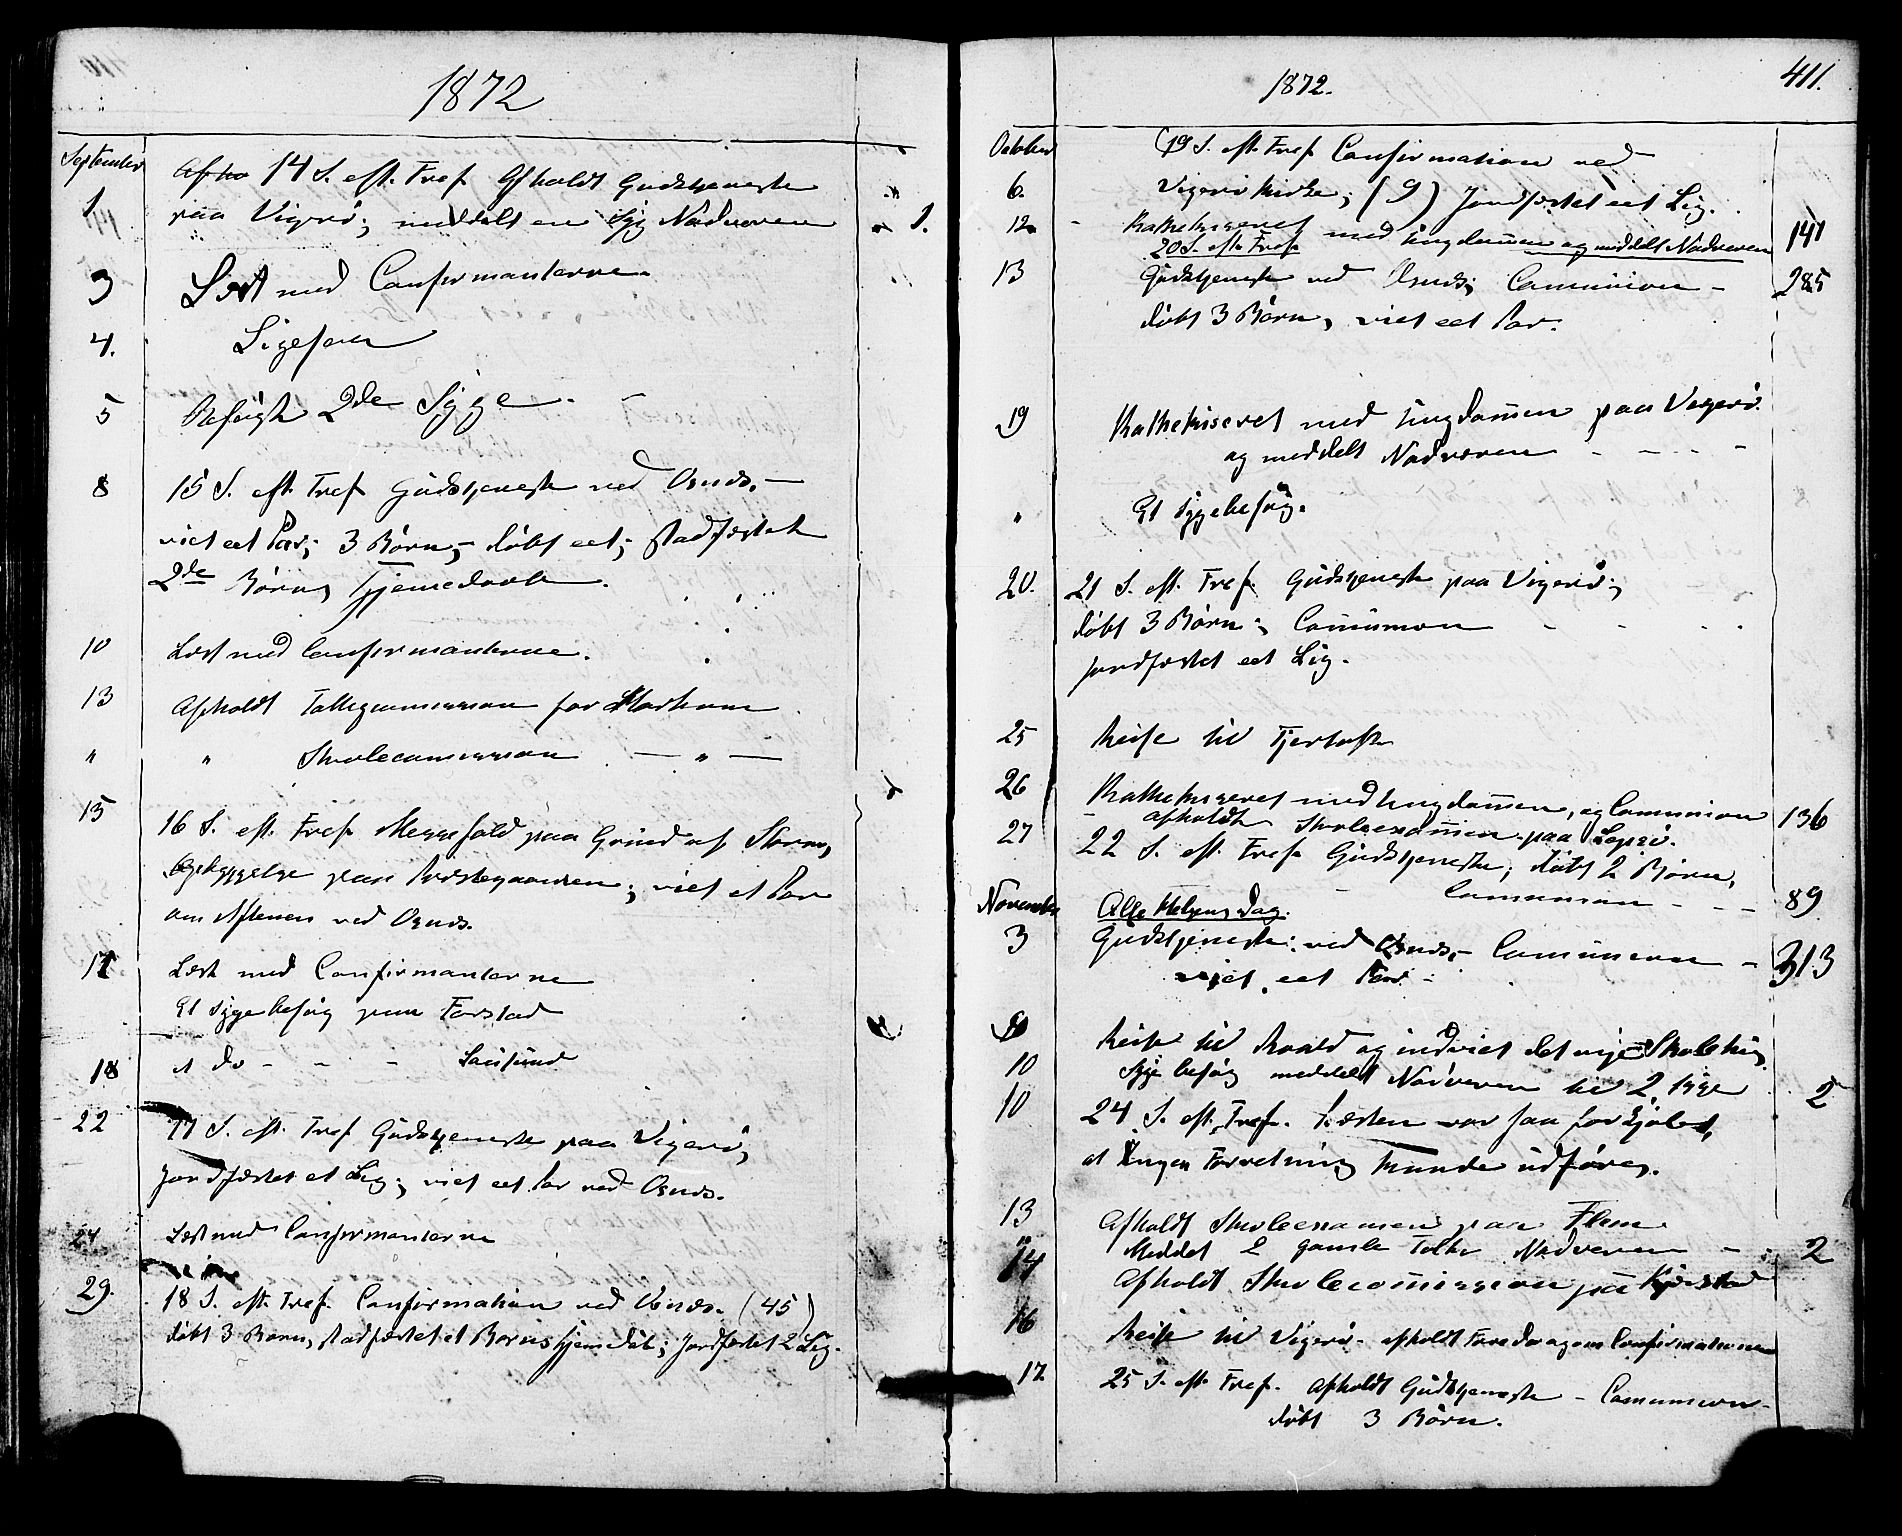 1872
September
1 14 S. eft. Tref Afholdt Gudstjeneste
paa Vigerø; meddelt en Syg Nadveren 1.
3 Læst med Confirmanterne
4. Ligesaa
5 Besøgt 2de Syge.
8 15 S. eft. Tref Gudstjeneste ved Osnes. –
viet eet Par; 3 Børn, døbt eet; stadfæstet
2de Børns Hjemedaab.
10 Læst med Confirmanterne.
13 Afholdt for Harham
" " Skolecommission — " —
15 16 S. eft. Tref Messefald paa Grund af Storm,
paa Præstegaarden; viet et Par
om Aftenen ved Osnes.
17 Læst med Confirmanterne
Et Sygebesøg paa Farstad
18 et do - - -
22 17 S. eft. Tref Gudstjeneste paa Vigerø,
Jordfæstet et Lig; viet eet Par ved Osnes.
24 Læst med Confirmanterne
29. 18 S. eft. Tref. Confirmation ved Osnes. (45)
døbt 3 Børn, stadfæstet et Børns Hjemedåb; Jordfæstet 2 Lig.
1872. 411.
October 19 S. eft. Tref Confirmation ved
6. Vigerø Kirke; (9) Jordfæstet eet Lig.
12 Kathekiseret med Ungdommen og meddelt Nadveren 141
20 S. eft. Tref.
13 Gudstjeneste ved Osnes; Communion – 285
døbt 3 Børn, viet eet Par.
19 Kathekiseret med Ungdommen paa Vigerø
og meddelt Nadveren - - - -
" Et Sygebesøg.
20. 21 S. eft. Tref. Gudstjeneste paa Vigerø;
døbt 3 Børn; Communion - - - -
jordfæstet eet Lig.
25 Reise til Fjertoft
26 Kathekiseret med Ungdommen, og Communion 136
afholdt Skoleexamen paa Lepsø.
27 22 S. eft. Tref. Gudstjeneste; døbt 2 Børn,
Communion - - - 89
November Alle Helgens Dag.
3 Gudstjeneste ved Osnes, – Communion – 313
viet eet Par -
Reise til Roald og indviet det nye Skolehus,
10 Sygebesøg meddelt Nadveren til 2 syge 2
10 24 S. eft. Tref. Præsten var saa forkjølet,
at Ingen Forretning kunde udføres.
13 Afholdt Skoleexamen paa Flem
" Meddelt 2 gamle Folk Nadveren - 2
14 Afholdt Skolecommission på Kjerstad
16 Reise til Vigerø - afholdt Foredrag om Confirmationen
17. 25 S. eft. Tref. Afholdt Gudstjeneste – Communion -
døbt 3 Børn.